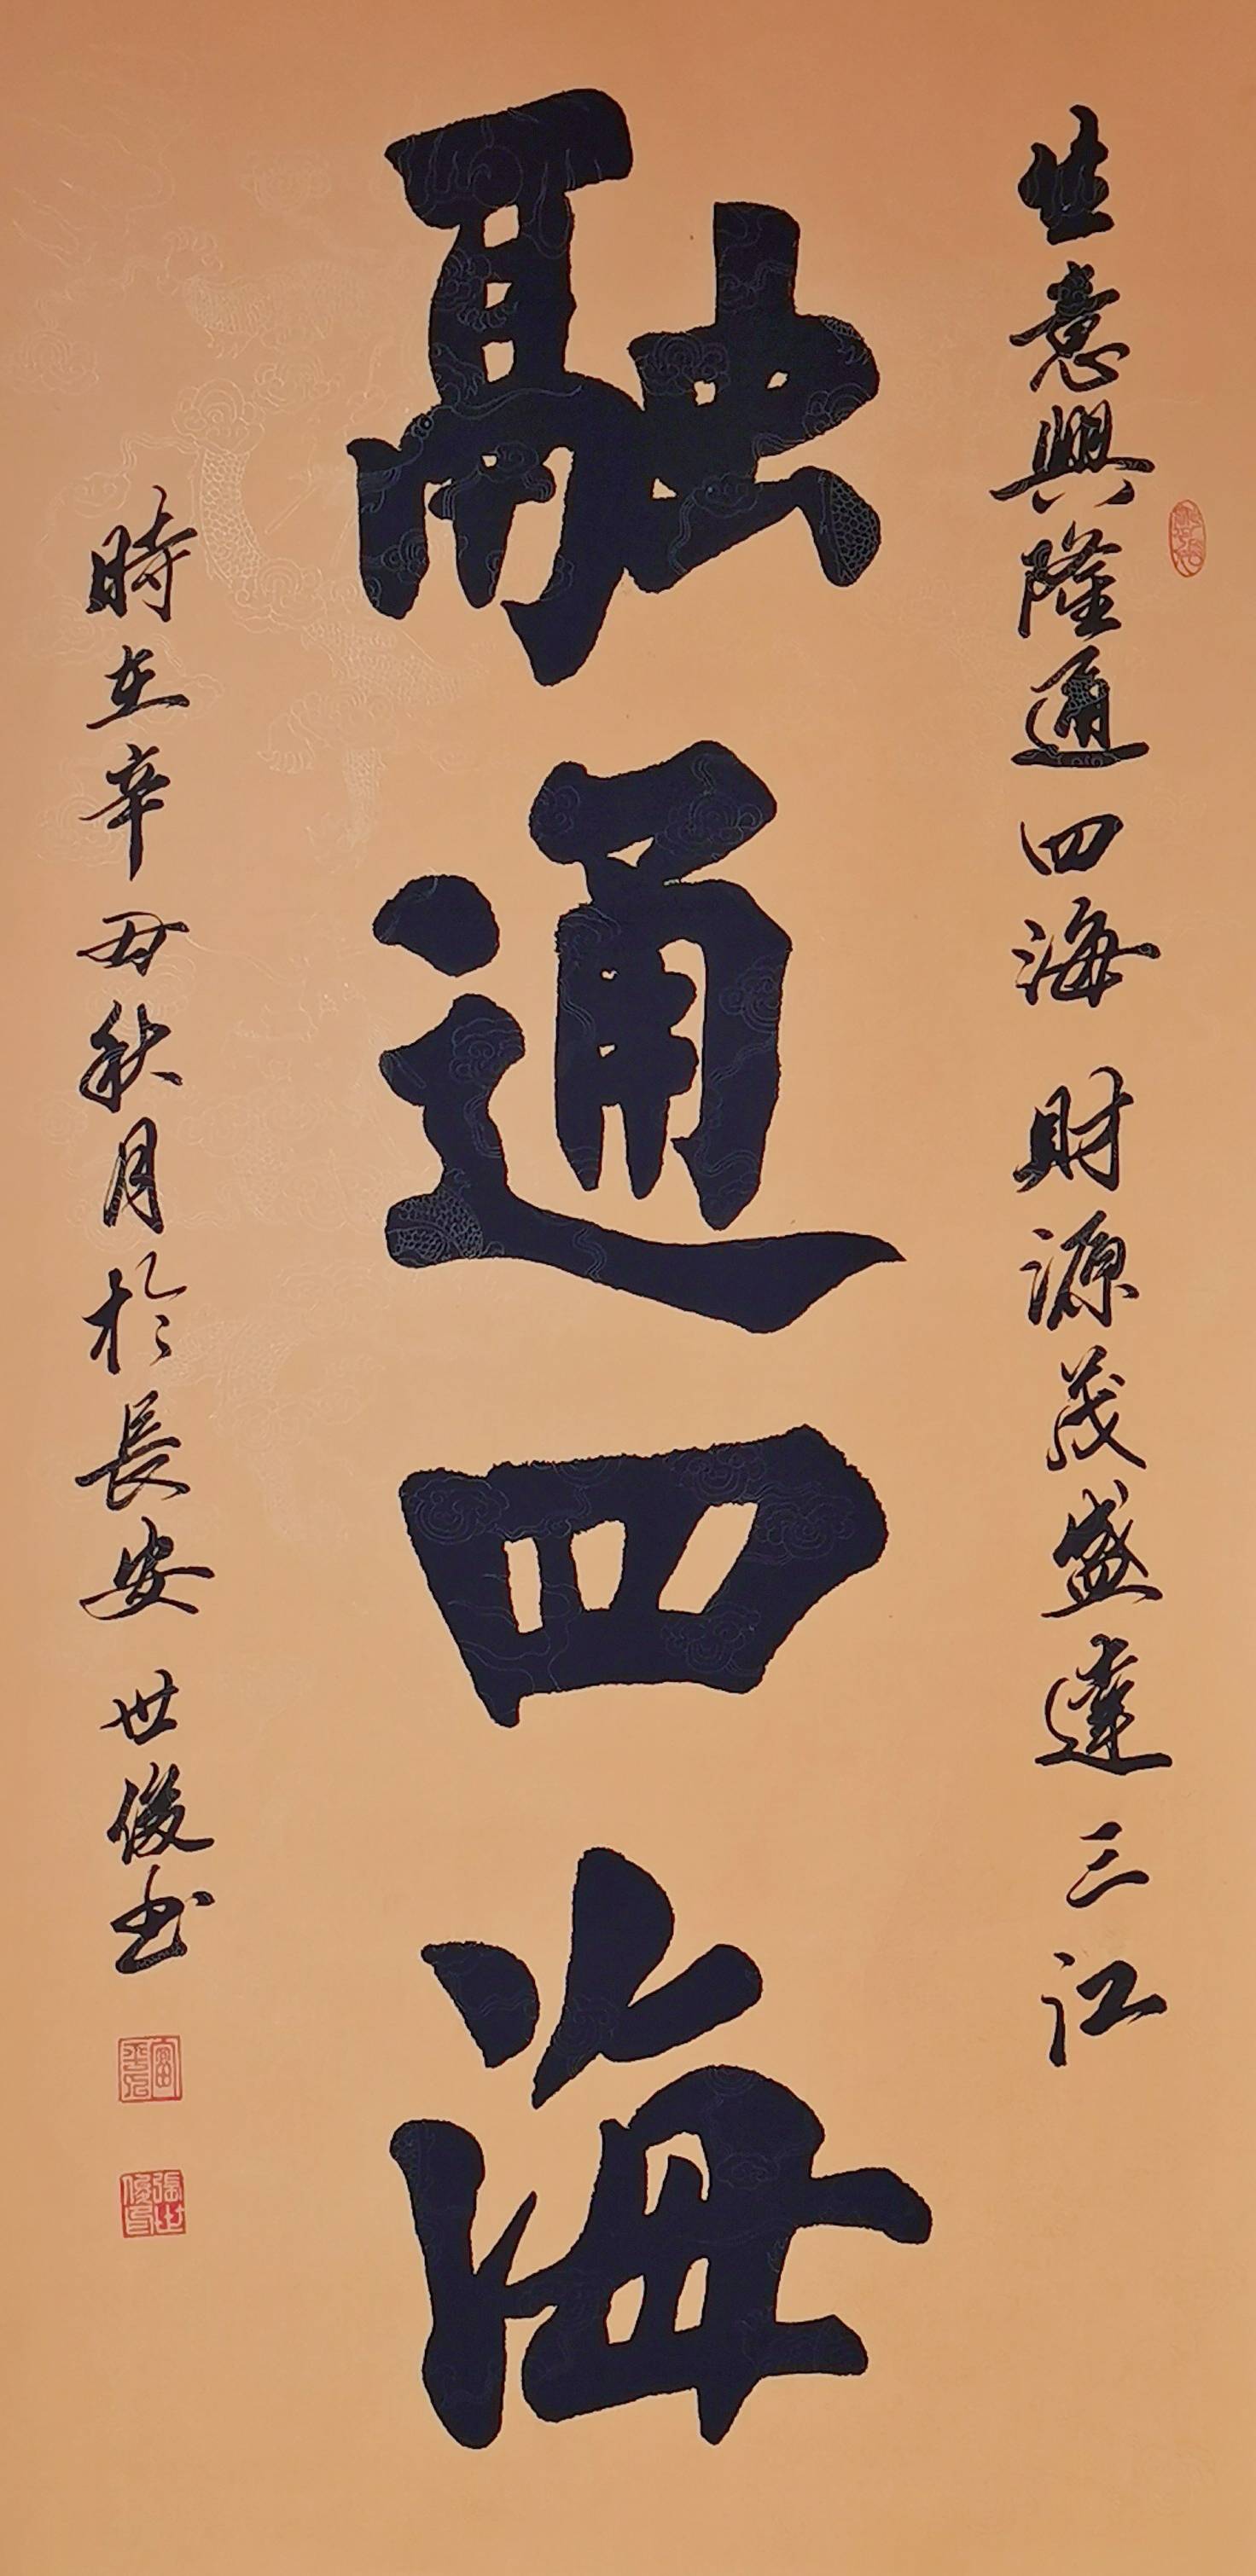 生意興隆通四海 財源茂盛達三江
融通四海
時在辛丑秋月於長安 世俊书